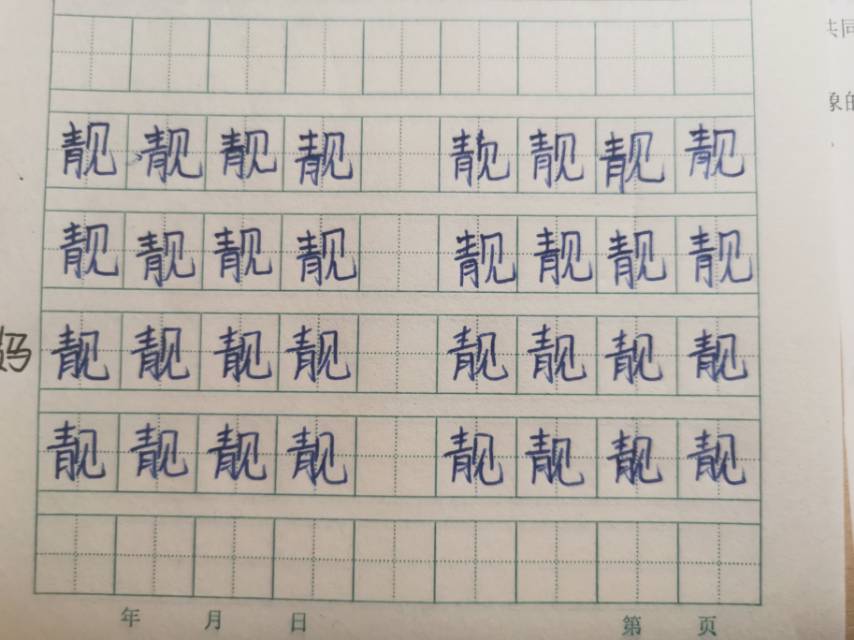 共同
象的
靓靓靓靓 靓靓靓靓
靓靓靓靓 靓靓靓靓
妈
靓靓靓靓 靓靓靓靓
靓靓靓靓 靓靓靓靓
年 月 日 第 页